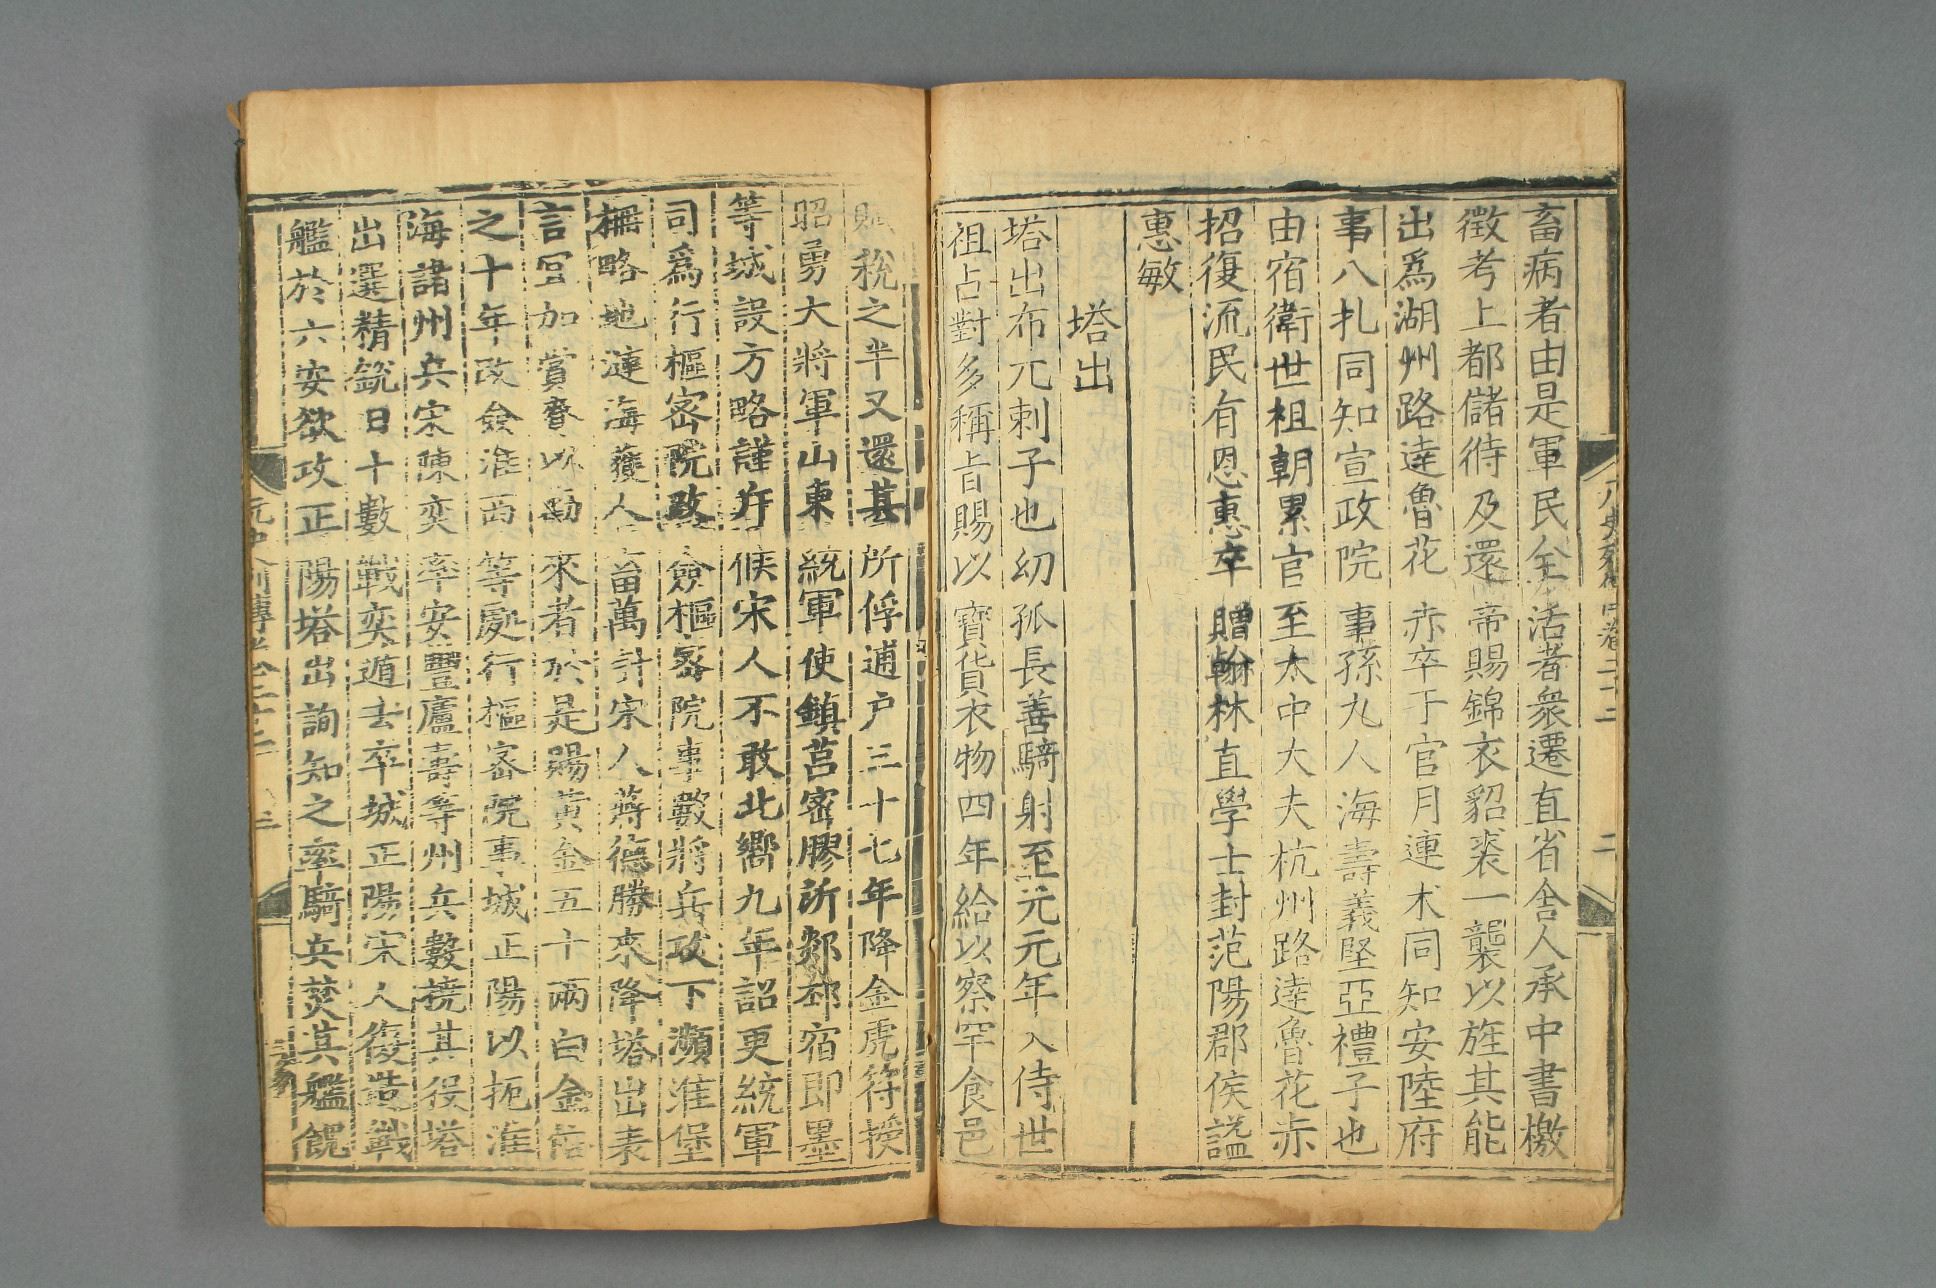 畜病者由是軍民全活者衆遷直省舍人承中書檄
徵考上都儲偫及還帝賜錦衣貂裘一襲以旌其能
出爲湖州路達魯花赤卒于官月連术同知安陸府
事八扎同知宣政院事孫九人海壽義堅亞禮子也
由宿衛世祖朝累官至太中大夫杭州路達魯花赤
招復流民有恩惠卒贈翰林直學士封范陽郡侯諡
惠敏
塔出
塔出布兀剌子也幼孤長善騎射至元元年入侍世
祖占對多稱旨賜以寶貨衣物四年給以察罕食邑
賦稅之半又還其所俘逋户三十七年降金虎符授
昭勇大將軍山東統軍使鎮莒密膠沂郯邳宿即墨
等城設方略謹斥候宋人不敢北嚮九年詔更統軍
司爲行樞密院改僉樞密院事數將兵攻下瀕淮堡
柵略地漣海獲人畜萬計宋人蔣德勝來降塔出表
言宜加賞賚以勸來者於是賜黃金五十兩白金倍
之十年改僉淮西等處行樞密院事城正陽以扼淮
海諸州兵宋陳奕率安豐廬壽等州兵數撓其役塔
出選精銳日十數戰奕遁去卒城正陽宋人復造戰
艦於六安欲攻正陽塔出詢知之率騎兵焚其艦餽